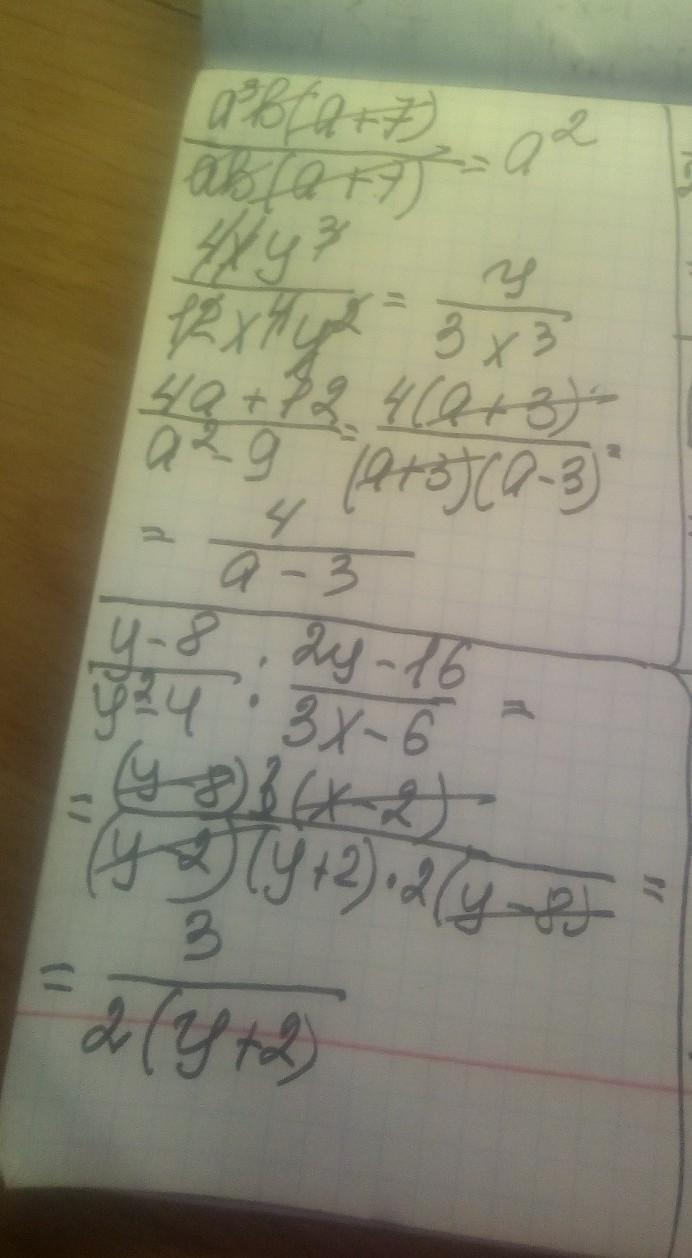 a³b(a+7)/ab(a+7) = a²
4xy³/12x⁴y² = y/3x³
4a+12/a²-9 = 4(a+3)/(a+3)(a-3) =
= 4/a-3
y-8/y²-4 : 2y-16/3x-6 =
= (y-8)3(x-2)/(y-2)(y+2)·2(y-8) =
= 3/2(y+2)